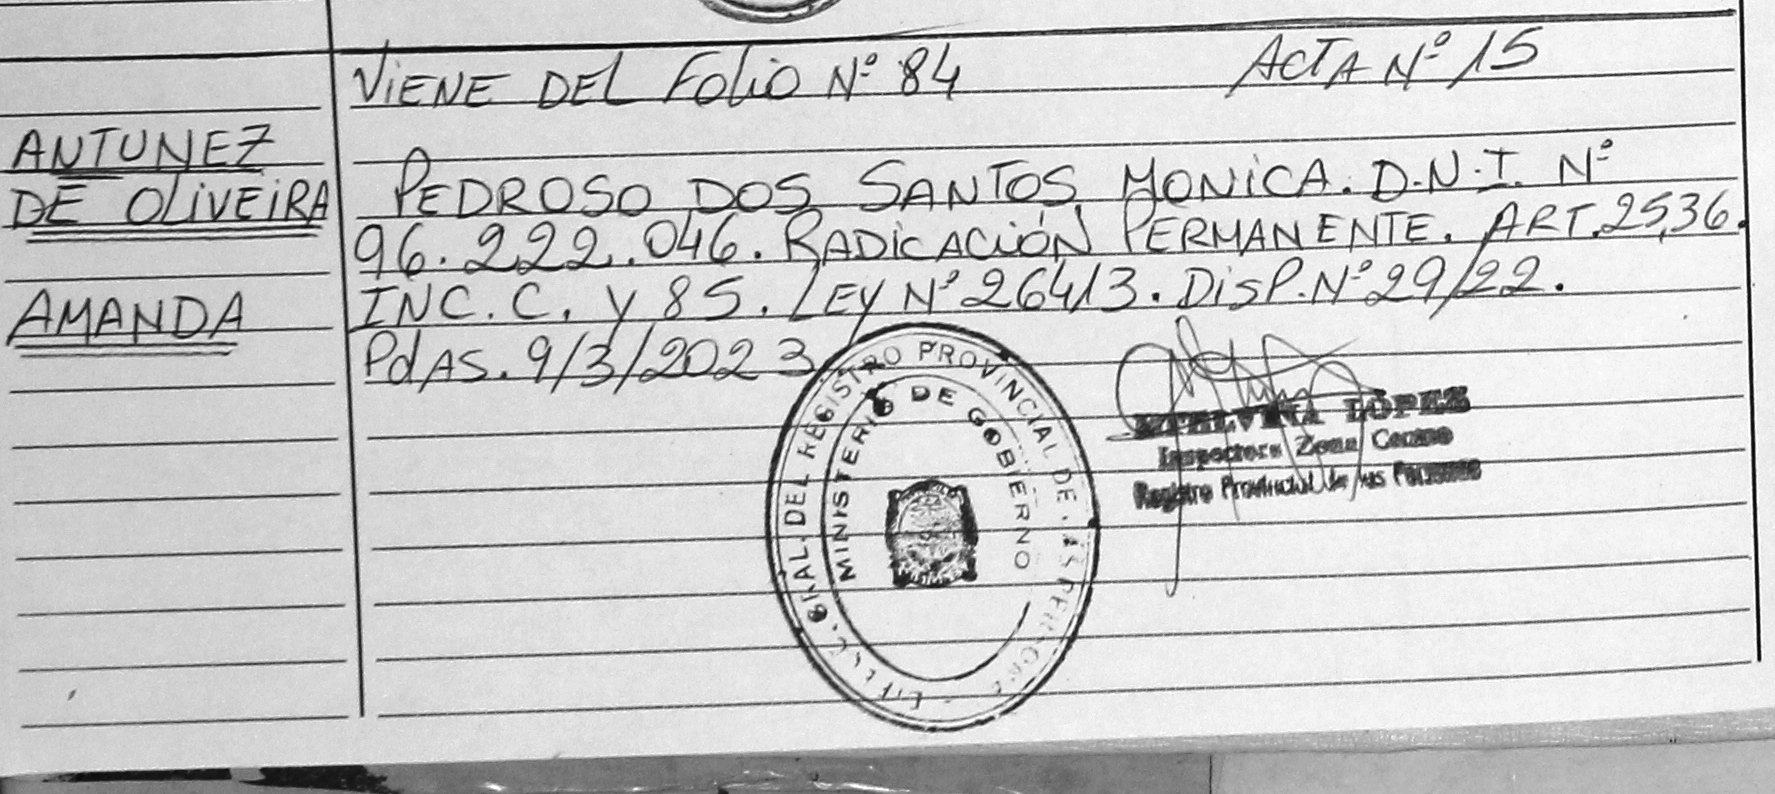 VIENE DEL FOLIO Nº 84
ACTA Nº 15
ANTUNEZ
DE OLIVEIRA
AMANDA
PEDROSO DOS SANTOS MONICA. D.N.I. Nº
96.222.046. RADICACIÓN PERMANENTE. ART. 25,36.
INC. C. y 85. LEY Nº 26413. DISP. Nº 29/22.
PdAS. 9/3/2023
DEL REGISTRO PROVINCIAL DE
MINISTERIO DE GOBIERNO
LÓPEZ
Inspectora Zona Centro
Registro Provincial de las Personas